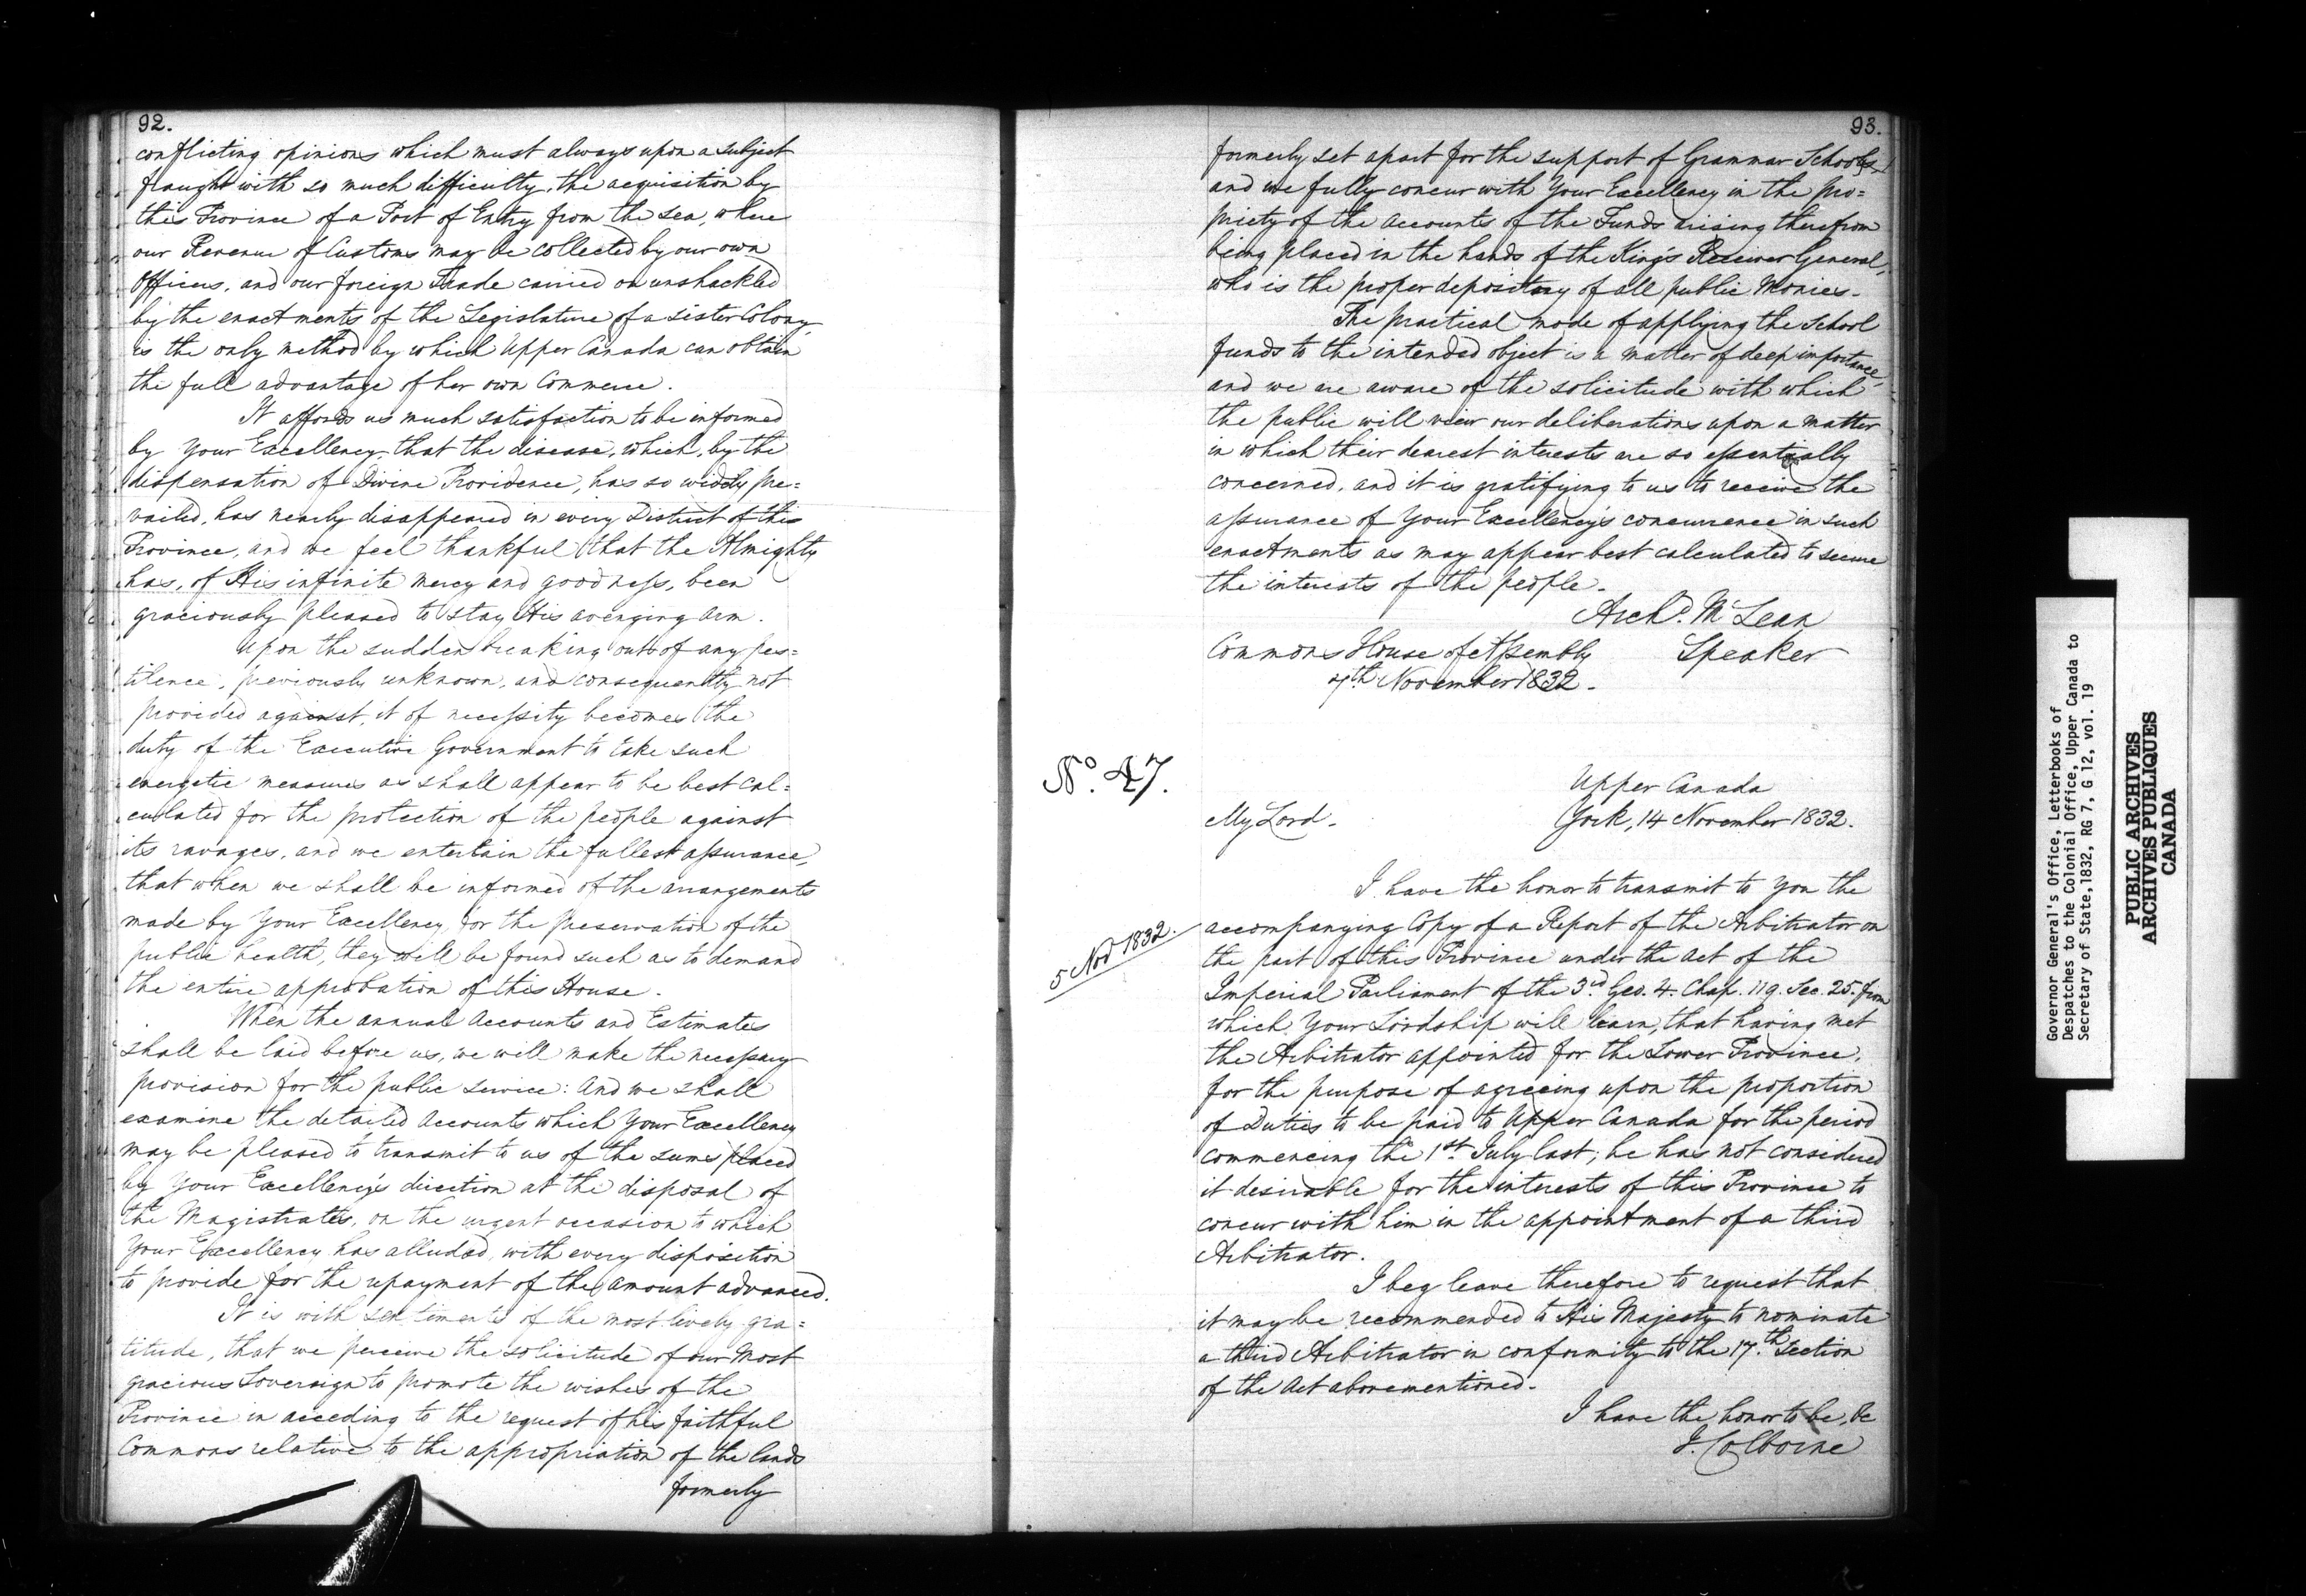 92.
conflicting opinions which must always upon a subject
fraught with so much difficulty, the acquisition by
this Province of a Port of Entry from the sea, where
our Revenue of Customs may be collected by our own
Officers, and our foreign Trade carried on unshackled
by the enactments of the Legislature of a sister Colony
is the only method by which Upper Canada can obtain
the full advantage of her own Commerce.
It affords us much satisfaction to be informed
by Your Excellency, that the disease, which, by the
dispensation of Divine Providence, has so widely pre=
vailed, has nearly disappeared in every District of this
Province, and we feel thankful that the Almighty
has, of His infinite mercy and goodness, been
graciously pleased to stay His avenging arm.
Upon the sudden breaking out of any pes=
tilence, previously unknown, and consequently not
provided against, it of necessity becomes the
duty of the Executive Government to take such
energetic measures as shall appear to be best cal=
culated for the protection of the people against
its ravages, and we entertain the fullest assurance,
that when we shall be informed of the arrangements
made by Your Excellency for the preservation of the
public health, they will be found such as to demand
the entire approbation of this House.
When the annual Accounts and Estimates
shall be laid before us, we will make the necessary
provision for the public service: And we shall
examine the detailed Accounts which Your Excellency
may be pleased to transmit to us of the sums placed
by Your Excellency's direction at the disposal of
the Magistrates, on the urgent occasion to which
Your Excellency has alluded, with every disposition
to provide for the repayment of the amount advanced.
It is with sentiments of the most lively gra=
titude, that we perceive the solicitude of our Most
gracious Sovereign to promote the wishes of the
Province in acceding to the request of his faithful
Commons relative to the appropriation of the lands
formerly
93.
formerly set apart for the support of Grammar Schools
and we fully concur with Your Excellency in the pro=
priety of the accounts of the Funds arising therefrom
being placed in the hands of the King's Receiver General,
who is the proper depositary of all public Monies.
The practical mode of applying the School
funds to the intended object is a matter of deep importance,
and we are aware of the solicitude with which
the public will view our deliberations upon a matter
in which their dearest interests are so essentially
concerned, and it is gratifying to us to receive the
assurance of Your Excellency's concurrence in such
enactments as may appear best calculated to secure
the interests of the people.
Archd. McLean
Commons House of Assembly Speaker
7th November 1832.
No. 47.
Upper Canada
My Lord. York, 14 November 1832.
I have the honor to transmit to you the
5 Nov 1832.
accompanying Copy of a Report of the Arbitrator on
the part of this Province under the Act of the
Imperial Parliament of the 3rd. Geo. 4. Chap. 119. Sec. 25. from
which Your Lordship will learn, that having met
the Arbitrator appointed for the Lower Province,
for the purpose of agreeing upon the proportion
of Duties to be paid to Upper Canada for the period
commencing the 1st July last; he has not considered
it desirable for the interests of this Province to
concur with him in the appointment of a third
Arbitrator.
I beg leave therefore to request that
it may be recommended to His Majesty to nominate
a third Arbitrator in conformity to the 17.th Section
of the Act abovementioned.
I have the honor to be, &c
J. Colborne
Governor General's Office, Letterbooks of
Despatches to the Colonial Office, Upper Canada to
Secretary of State, 1832, RG 7, G 12, vol. 19
PUBLIC ARCHIVES
ARCHIVES PUBLIQUES
CANADA